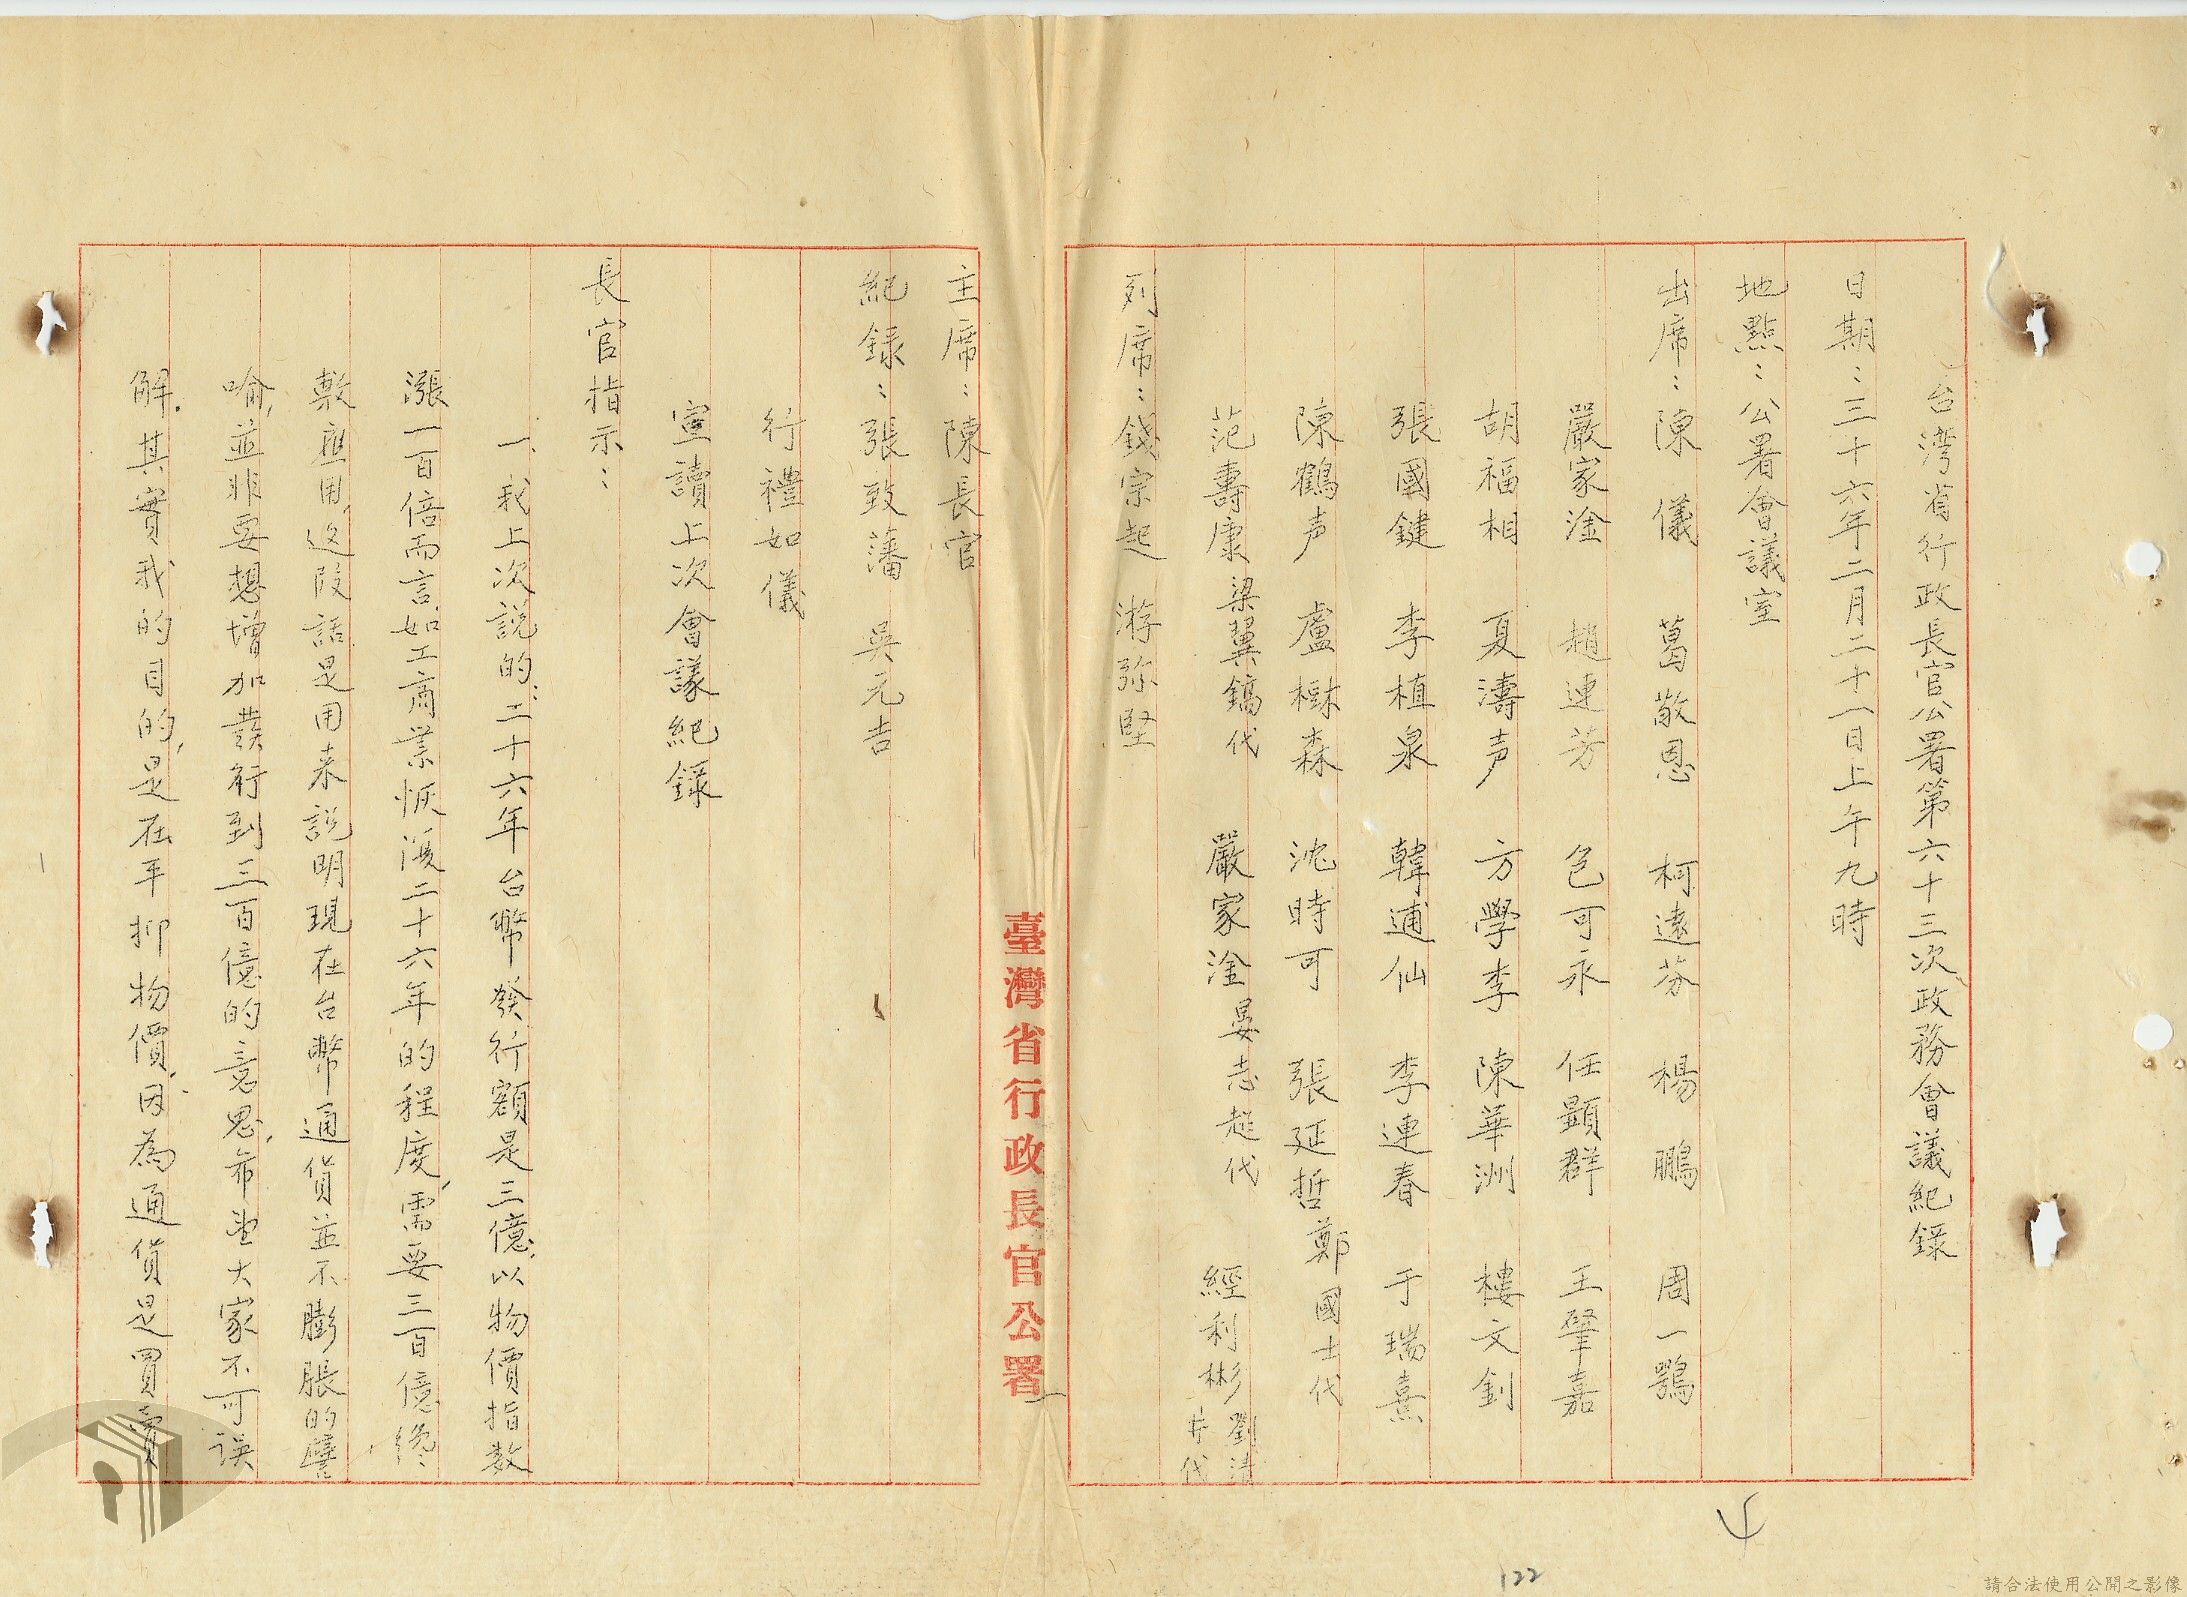 台湾省行政長官公署第六十三次政務會議紀錄
日期：三十六年二月二十一日上午九時
地點：公署會議室
出席：陳 儀 葛敬恩 柯遠芬 楊 鵬 周一鶚
嚴家淦 趙連芳 包可永 任顯群 王肇嘉
胡福相 夏濤声 方學李 陳華洲 樓文釗
張國鍵 李植泉 韓逋仙 李連春 于瑞熹
陳鶴声 盧樹森 沈時可 張延哲 鄭國士代
范壽康 梁翼鎬代 嚴家淦 晏志超代 經利彬 劉清井代
列席：錢宗起 游弥堅
臺灣省行政長官公署
主席：陳長官
紀録：張致藩 吳元吉
行禮如儀
宣讀上次會議紀錄
長官指示：
一、我上次說的：二十六年台幣發行額是三億，以物價指数
漲一百倍而言，如工商業恢復二十六年的程度，需要三百億纔
敷應用，這段話是用来說明現在台幣通貨並不膨脹的譬
喻，並非要想增加發行到三百億的意思，希望大家不可誤
解．其實我的目的，是在平抑物價，因為通貨是買賣
122
請合法使用公開之影像